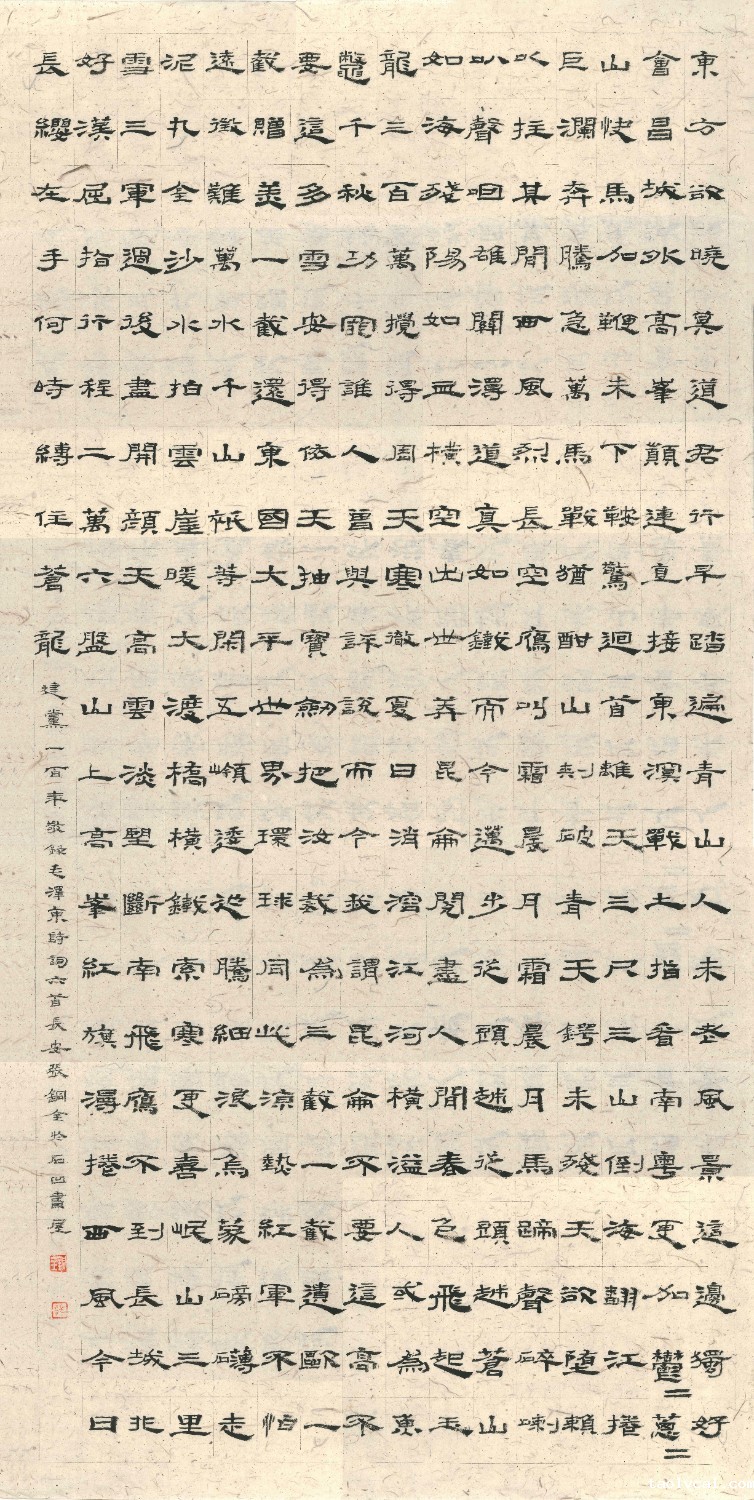 東方欲曉莫道君行早踏遍青山人未老風景這邊獨好
會昌城外高峯顛連直接東溟戰士指看南粵更加鬱二蔥二
山快馬加鞭未下鞍驚迴首離天三尺三山倒海翻江捲
巨瀾奔騰急萬馬戰猶酣山刺破青天鍔未殘天欲墮賴
以拄其間西風烈長空鴈叫霜晨月霜晨月馬蹄聲碎喇
叭聲咽雄關漫道真如鐵而今邁步從頭越從頭越蒼山
如海殘陽如血橫空出世莽昆侖閱盡人間春色飛起玉
龍三百萬攪得周天寒徹夏日消溶江河橫溢人或為魚
鱉千秋功罪誰人曾與評說而今我謂昆侖不要這高不
要這多雪安得依天抽寶劍把汝裁為三截一截遺歐一
截贈美一截還東國大平世界環球同此涼熱紅軍不怕
遠徵難萬水千山祇等閑五嶺逶迤騰細浪烏蒙磅礴走
泥丸金沙水拍雲崖暖大渡橋橫鐵索寒更喜岷山三里
雪三軍過後盡開顏天高雲淡望斷南飛鴈不到長城非
好漢屈指行程二萬六盤山上高峯紅旗漫捲西風今日
長纓在手何時縛住蒼龍
建黨一百年敬錄毛澤東詩詞六首長安張銅全於石凹書屋